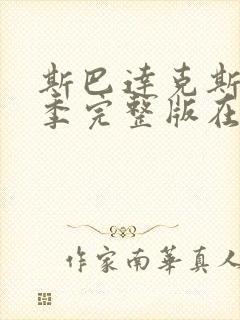 斯巴達克斯
季完整版在
作家南華真人